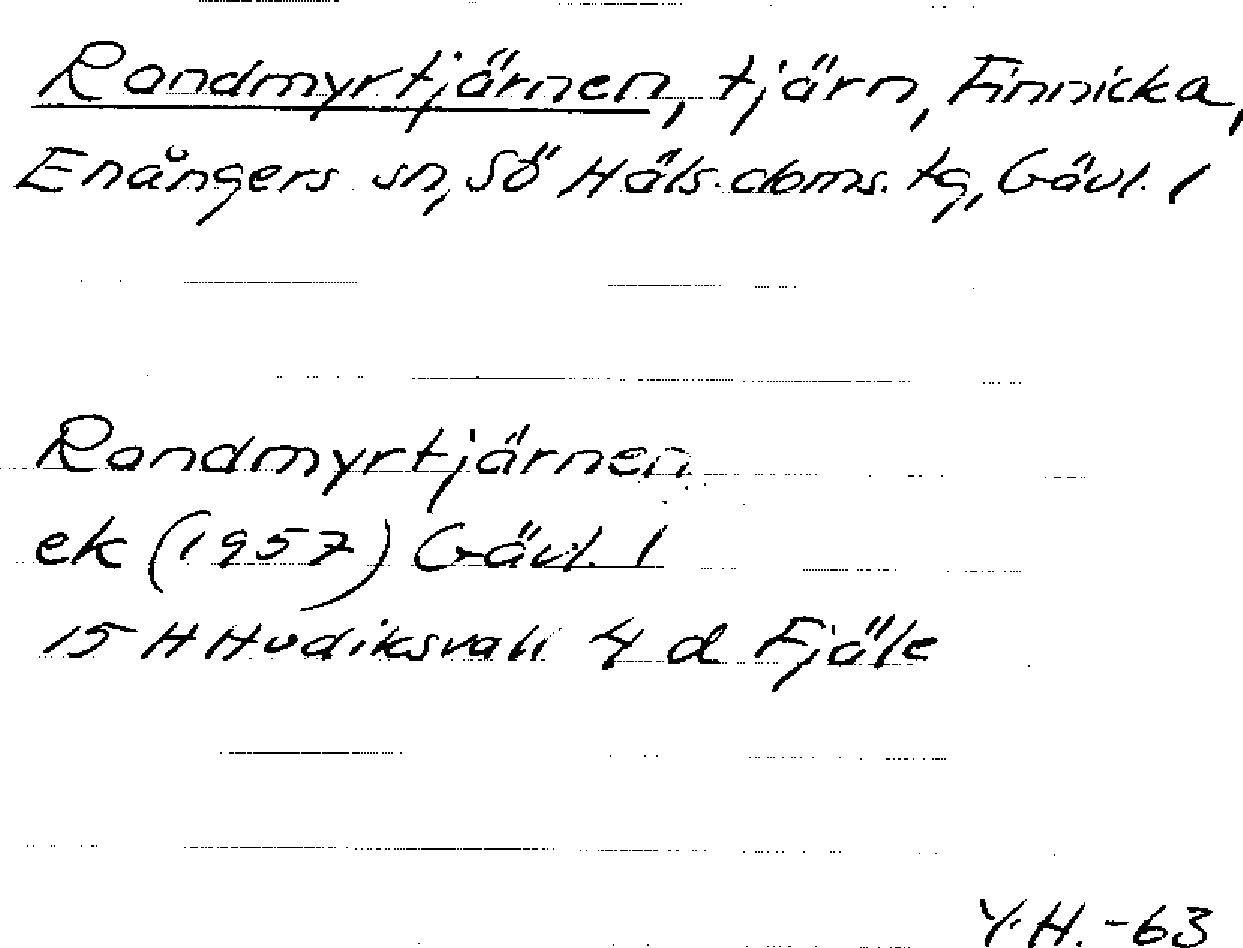 Randmyrtjärnen, tjärn, Finnicka,
Enångers sn, Sö Häls. doms. tg, Gävl. l
Randmyrtjärnen
ek (1957) Gävl. l
15 H Hudiksvall 4 d Fjäle
Y.H. -63